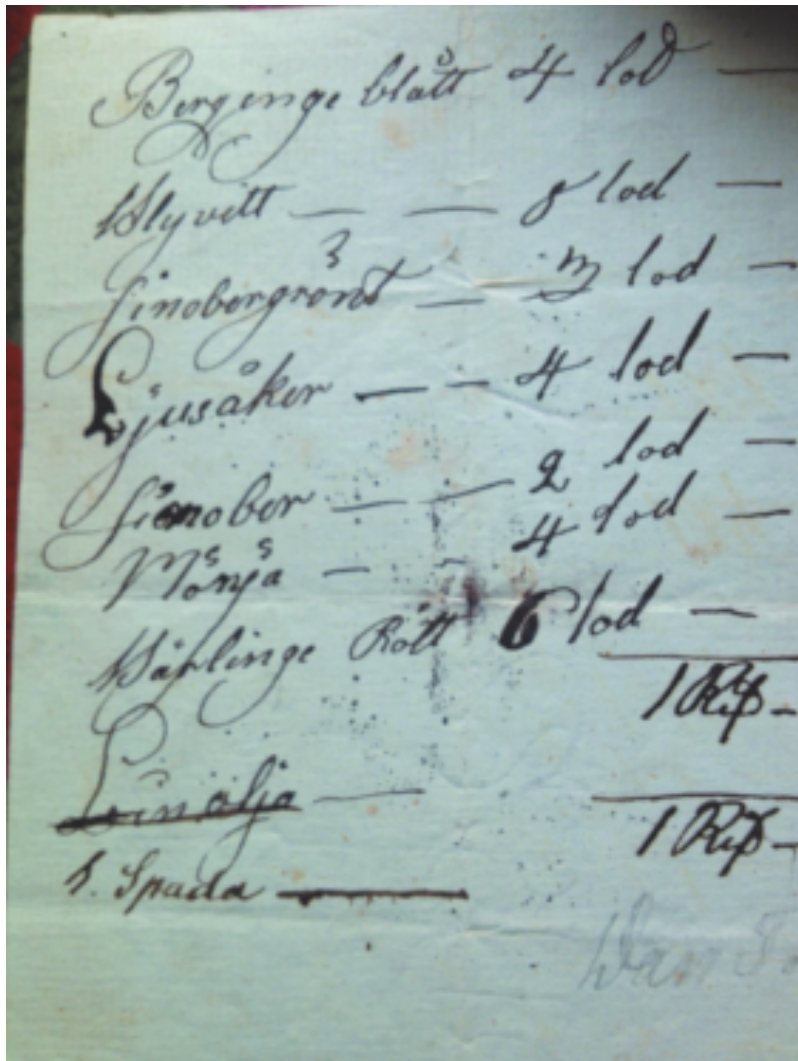 Berginge blått 4 lod —
Blyvitt — — 8 lod —
Sinobergrönt — 3 lod —
Ljusåker — - 4 lod —
Sinober — — 2 lod —
Mönja — - 4 lod —
Bärlinge Rött 6 lod —
1 Rd -
Linolja —
1 Rd -
1. Spada —